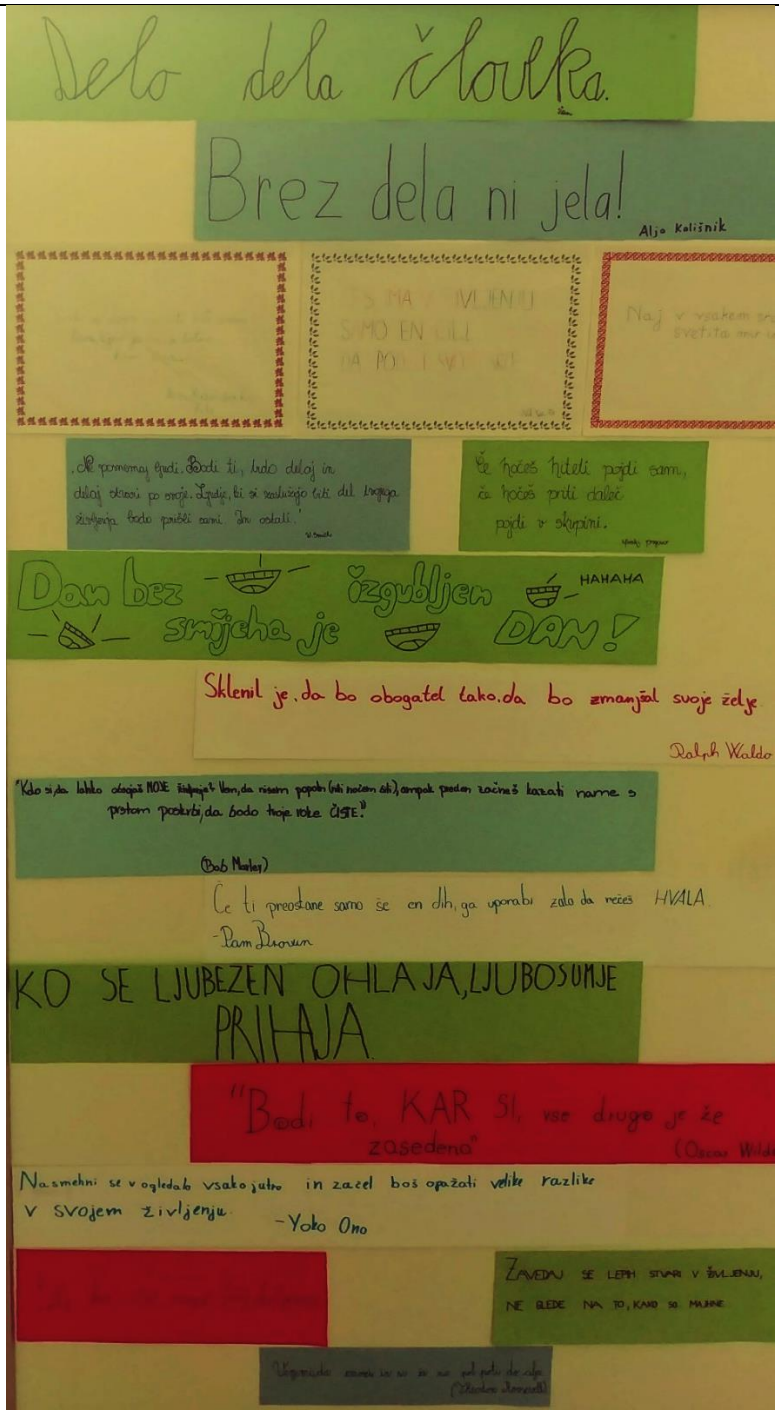 Delo dela človka.
Brez dela ni jela!
Aljo Kališnik
MA V
SAMO EN CILJ
Naj v vsakem
svetita mir
Ne posnemaj ljudi. Bodi ti, trdo delaj in
delaj stvari po svoje. Ljudje, ki si zaslužijo biti del tvojega
življenja bodo prišli sami. In ostali.
W. Smith
Če hočeš hiteti pojdi sam,
če hočeš priti daleč
pojdi v skupini.
Dan bez izgubljen HAHAHA
smijeha je DAN!
Sklenil je, da bo obogatel tako, da bo zmanjšal svoje želje
Ralph Waldo
"Kdo si, da lahko obsojaš MOJE življenje? Vem, da nisem popoln (niti nočem biti), ampak preden začneš kazati name s
prstom poskrbi, da bodo tvoje roke ČISTE."
(Bob Marley)
Če ti preostane samo še en dih, ga uporabi zato da rečeš HVALA.
-Pam Brown
KO SE LJUBEZEN OHLAJA, LJUBOSUMJE
PRIHAJA.
"Bodi to, KAR SI, vse drugo je že
zasedeno"
(Oscar
Nasmehni se v ogledalo vsako jutro in začel boš opažati velike razlike
v svojem življenju.
-Yoko Ono
ZAVEDAJ SE LEPIH STVARI V ŽIVLJENJU,
NE GLEDE NA TO, KAKO SO MAJHNE